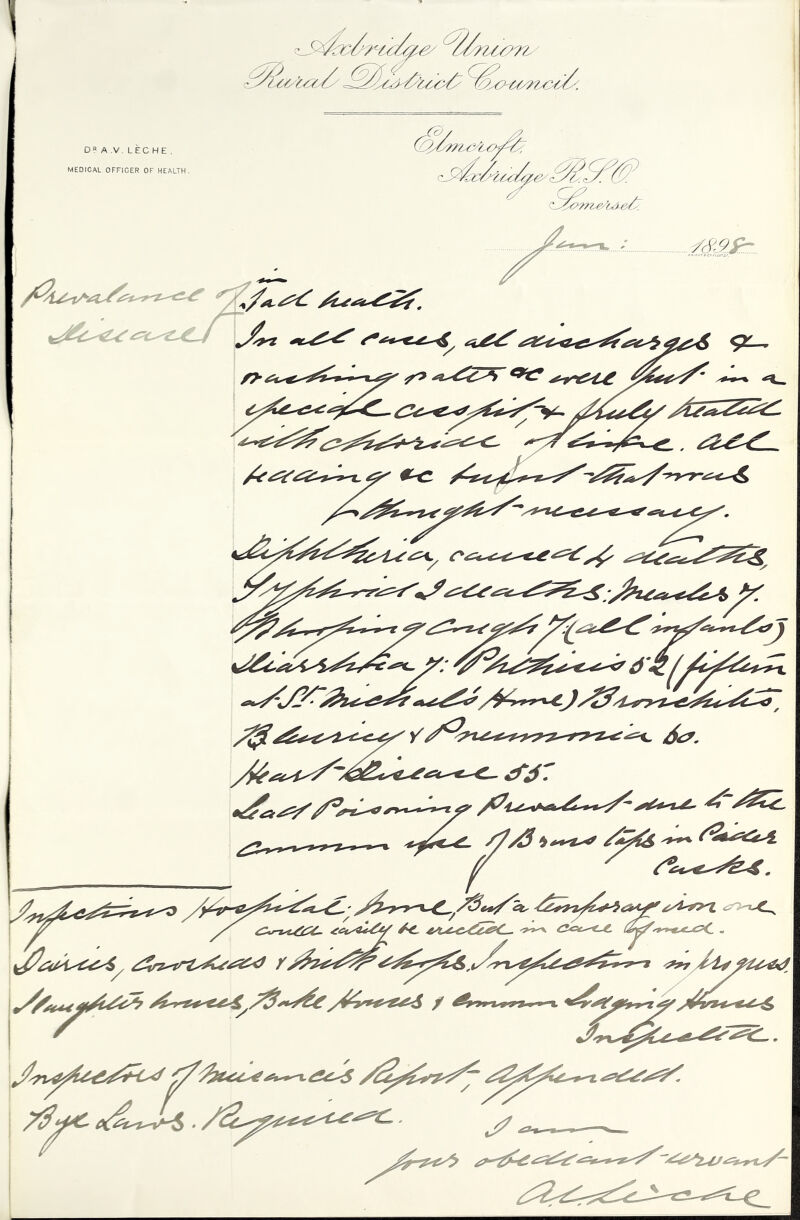 Axbridge Union
Rural District Council.
Dr A. V. LÈCHE.
MEDICAL OFFICER OF HEALTH.
Elmcroft.
Axbridge R.S.O.
Somerset.
Jan: 1898
Prevalance of
Disease
in
bad health.
In all cases, all discharges &
washing water &c were put in a
special cesspit, & freely treated
with chloride of lime. All
bedding &c burnt that was
thought necessary.
Diphtheria, caused 4 deaths,
Typhoid 2 deaths: Measles 7.
Whooping Cough 7: (all infants)
Diarrhœa 7: Phthisis 52 (fifteen
at St. Michael's Home) Bronchitis,
Pleuricy & Pneumonia 60.
Heart Disease 55.
Lead Poisoning Prevalent due to the
common use of Brass taps in Cider
Casks.
Infectious Hospital; None, But a temporary iron one
could easily be erected in case of need.
Dairies, cowsheds & Milkshops, Inspection in progress.
Slaughterhouses, Bake Houses & common Lodging Houses
Inspected.
Inspectors of Nuisancis Report, Appended.
Bye Laws. Required.
I am
your obediant servant
A.V. Lèche